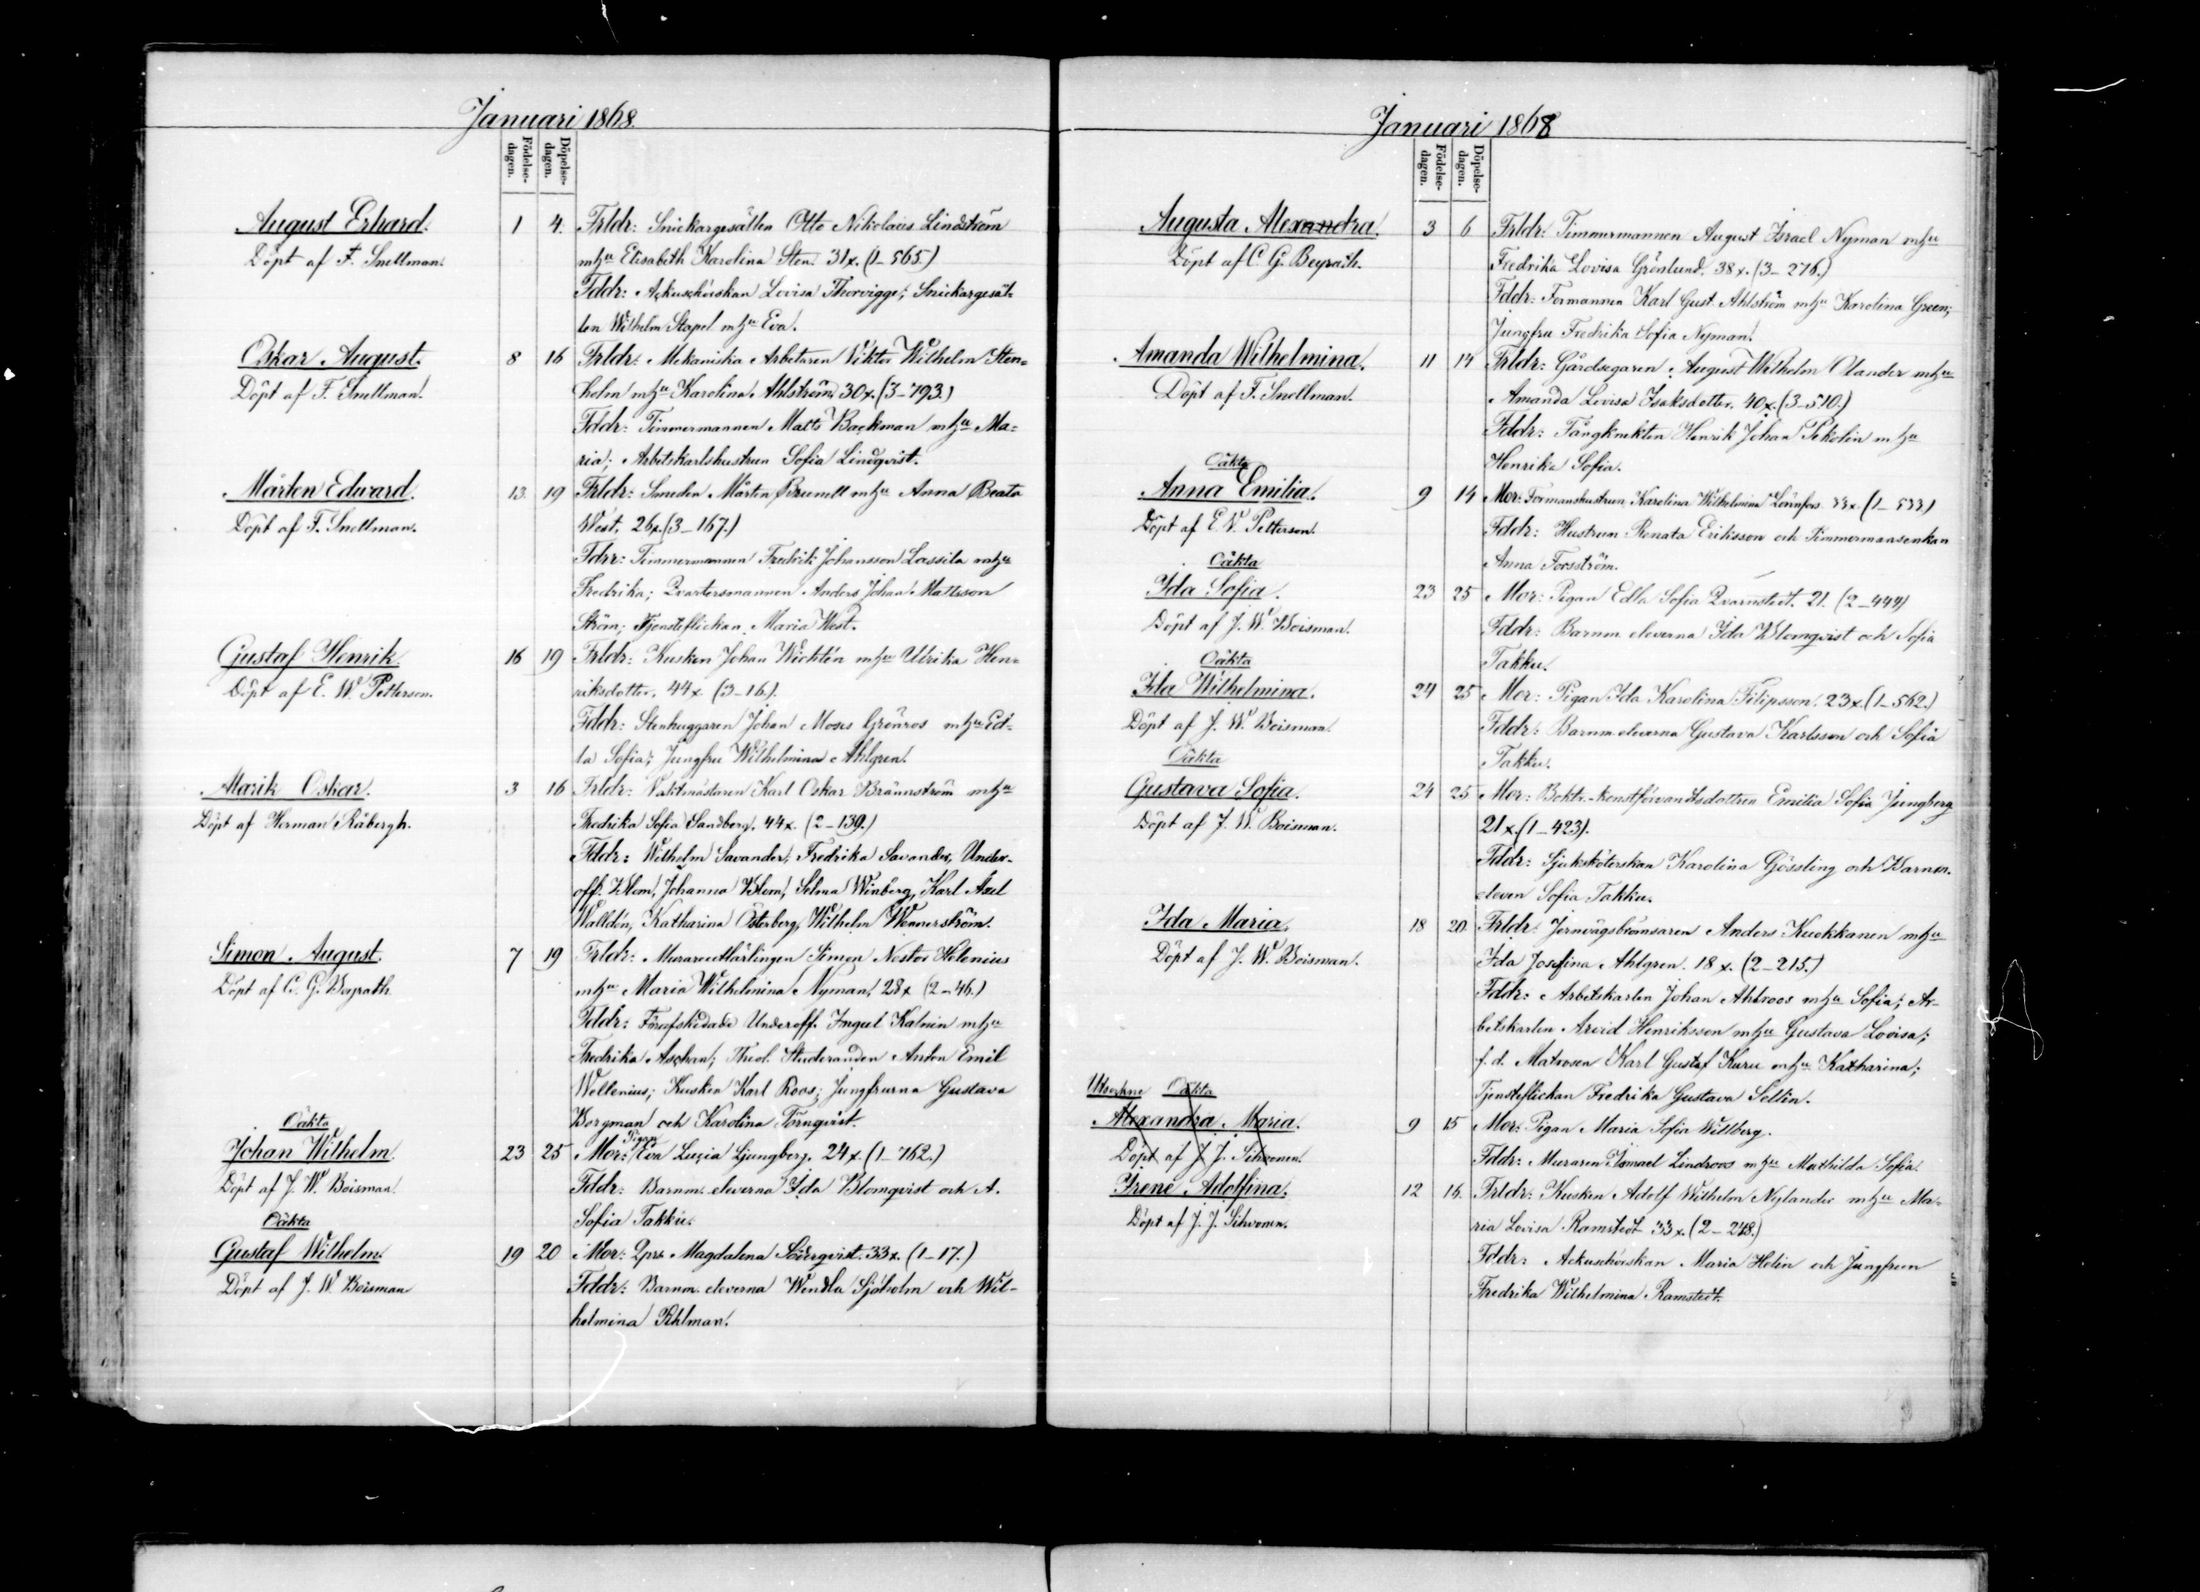 Januari 1868.
Födelse-
dagen.
Döpelse-
dagen.
August Erhard.
Döpt af F. Snellman.
1 4. Frldr: Snickargesällen Otto Nikolaus Lindström
mhu Elisabeth Karolina Sten. 31x. (1-565.)
Fddr: Ackuschörskan Lovisa Thorvigge; Snickargesäl-
len Wilhelm Stapel mhu Eva.
Oskar August.
Döpt af F. Snellman.
8 16 Frldr: Mekaniska Arbetaren Viktor Wilhelm Sten-
holm mhu Karolina Ahlström 30x. (3-793.)
Fddr: Timmermannen Matts Backman mhu Ma-
ria; Arbetskarlshustrun Sofia Lindqvist.
Mårten Edward.
Döpt af F. Snellman.
13. 19 Frldr: Smeden Mårten Brunell mhu Anna Beata
West. 26x. (3-167.)
Fddr: Timmermannen Fredrik Johansson Lassila mhu
Fredrika; Qvartersmannen Anders Johan Mattsson
Ström; Tjensteflickan Maria West.
Gustaf Henrik.
Döpt af E. W. Petterson.
16 19 Frldr: Kusken Johan Wichtén mhu Ulrika Hen-
riksdotter. 44x (3-16.)
Fddr: Stenhuggaren Johan Moses Grönros mhu Ed-
la Sofia; Jungfru Wilhelmina Ahlgren.
Alarik Oskar.
Döpt af Herman Råbergh.
3 16 Frldr: Vaktmästaren Karl Oskar Brännström mhu
Fredrika Sofia Sandberg. 44x. (2-139.)
Fddr: Wilhelm Savander, Fredrika Savander, Under-
off. Blom, Johanna Blom, Selma Winberg, Karl Axel
Walldén, Katharina Österberg, Wilhelm Wennerström.
Simon August.
Döpt af C. G. Beyrath
7 19 Frldr: Murarelärlingen Simon Nestor Helenius
mhu Maria Wilhelmina Nyman. 28x (2-46.)
Fddr: Förafskedade Underoff. Ingel Kalmin mhu
Fredrika Aschan; Theol. Studeranden Anton Emil
Wellenius; Kusken Karl Roos; Jungfrurna Gustava
Borgman och Karolina Törnqvist.
Oäkta
Johan Wilhelm.
Döpt af J. W. Boisman.
23 25 Mor: Pigan Eva Lucia Ljungberg. 24x. (1-762.)
Fddr: Barnm. eleverna Ida Blomqvist och A.
Sofia Takku.
Oäkta
Gustaf Wilhelm.
Döpt af J. W. Boisman
19 20 Mor: Qprs Magdalena Söderqvist. 33x. (1-17.)
Fddr: Barnm. eleverna Wendla Sjöholm och Wil-
helmina Pihlman.
Januari 1868
Födelse-
dagen.
Döpelse-
dagen.
Augusta Alexandra.
Döpt af C. G. Beyrath.
3 6 Frldr: Timmermannen August Israel Nyman mhu
Fredrika Lovisa Grönlund. 38x. (3-276.)
Fddr: Formannen Karl Gust. Ahlström mhu Karolina Green;
Jungfru Fredrika Sofia Nyman.
Amanda Wilhelmina.
Döpt af F. Snellman.
11 14 Frldr: Gårdsegaren August Wilhelm Olander mhu
Amanda Lovisa Isaksdotter. 40x. (3-510.)
Fddr: Fångknekten Henrik Johan Sekolin mhu
Henrika Sofia.
Oäkta
Anna Emilia.
Döpt af E. W. Petterson.
9 14 Mor: Formanshustrun Karolina Wilhelmina 33x. (1-533)
Fddr: Hustrun Renata Eriksson och Timmermansenkan
Anna Forsström.
Oäkta
Ida Sofia.
Döpt af J. W. Boisman.
23 25 Mor: Pigan Edla Sofia Qvarnstedt. 21. (2-449)
Fddr: Barnm. eleverna Ida Blomqvist och Sofia
Takku.
Oäkta
Ida Wilhelmina.
Döpt af J. W. Boisman.
24 25 Mor: Pigan Ida Karolina Filipsson. 23x. (1-562.)
Fddr: Barnm. eleverna Gustava Karlsson och Sofia
Takku.
Oäkta
Gustava Sofia.
Döpt af J. W. Boisman.
24 25 Mor: Boktr.-konstförvandtsdottren Emilia Sofia Jungberg
21x. (1-423).
Fddr: Sjuksköterskan Karolina Gössling och Barnm.
eleven Sofia Takku.
Ida Maria.
Döpt af J. W. Boisman.
18 20. Frldr: Jernvägsbromsaren Anders Kuokkanen mhu
Ida Josefina Ahlgren. 18x. (2-215.)
Fddr: Arbetskarlen Johan Ahlroos mhu Sofia; Ar-
betskarlen Arvid Henriksson mhu Gustava Lovisa;
f. d. Matrosen Karl Gustaf Kuru mhu Katharina;
Tjensteflickan Fredrika Gustava Sellin.
Utsockne Oäkta
Alexandra Maria.
Döpt af J. J. Sihvonen.
9 15 Mor: Pigan Maria Sofia Willberg.
Fddr: Muraren Ismael Lindroos mhu Mathilda Sofia.
Irene Adolfina.
Döpt af J. J. Sihvonen.
12 16. Frldr: Kusken Adolf Wilhelm Nylander mhu Ma-
ria Lovisa Ramstedt 33x. (2-248.)
Fddr: Ackuschörskan Maria Helin och Jungfrun
Fredrika Wilhelmina Ramstedt.